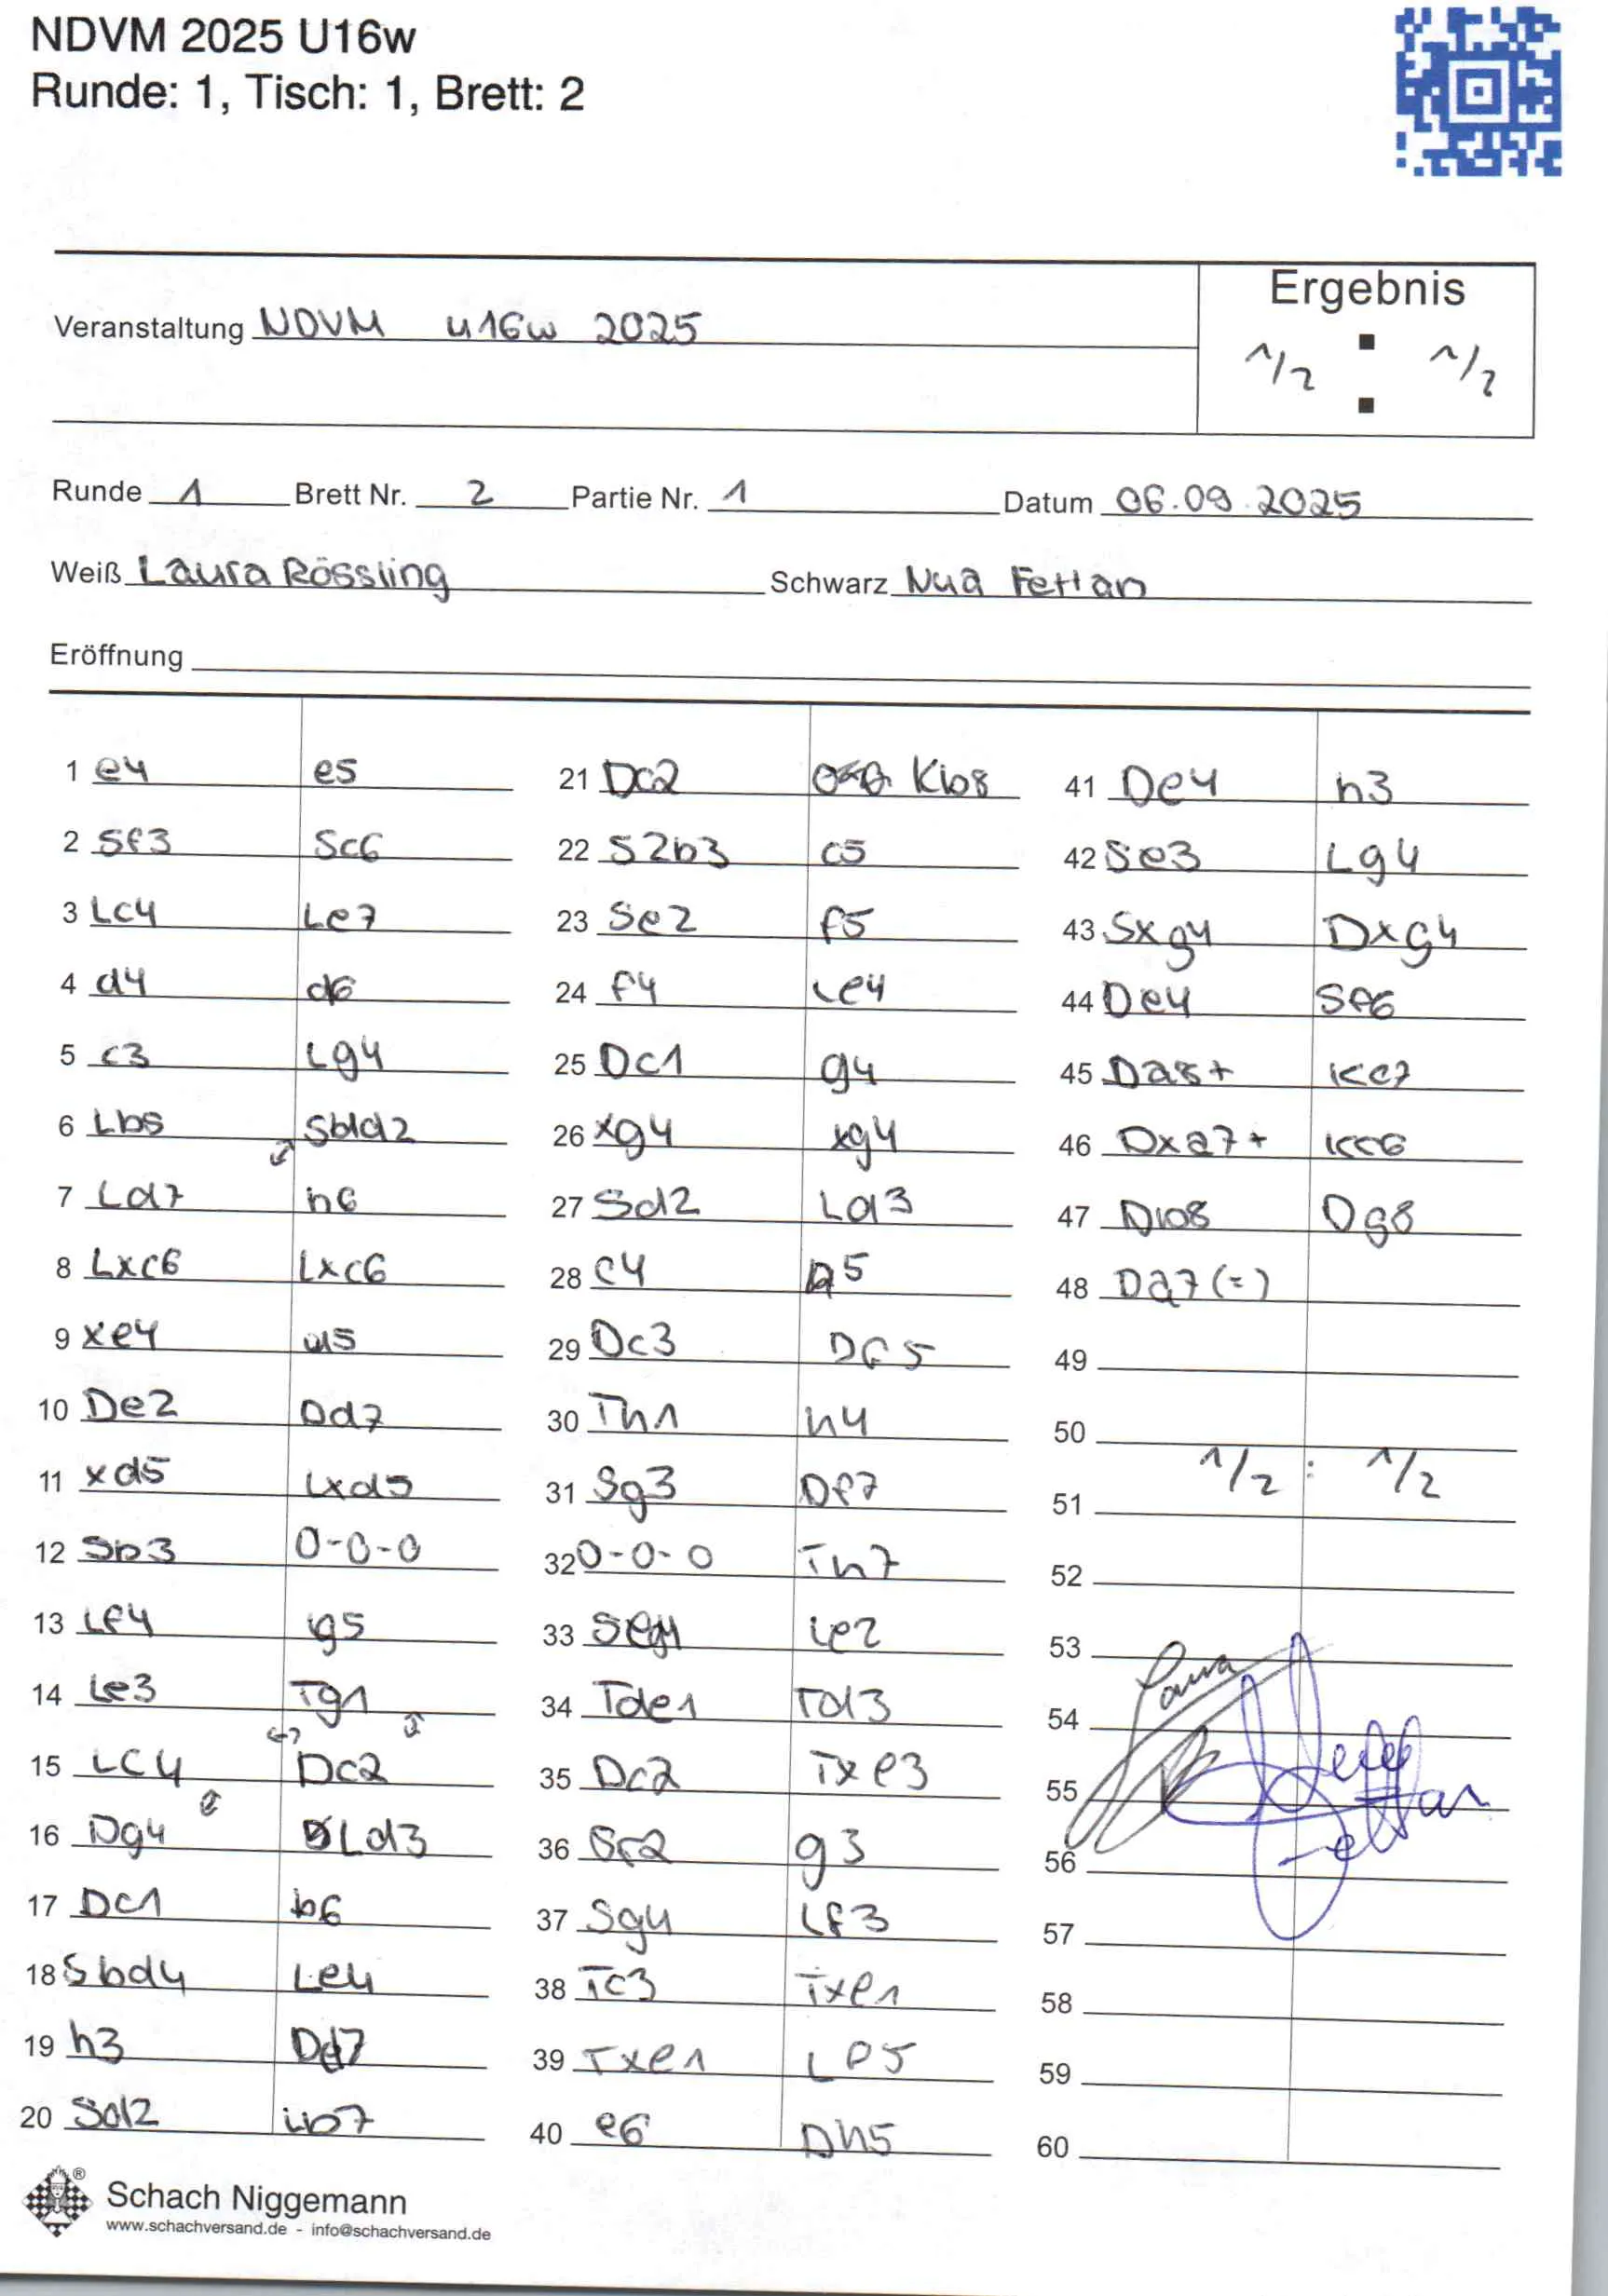 NDVM 2025 U16w
Runde: 1, Tisch: 1, Brett: 2
Ergebnis
Veranstaltung NDVM u16w 2025
1/2 : 1/2
Runde 1 Brett Nr. 2 Partie Nr. 1 Datum 06.09.2025
Weiß Laura Rössling Schwarz Fettan
Eröffnung
1 e4 e5
2 Sf3 Sc6
3 Lc4 Le7
4 d4 d6
5 c3 Lg4
6 Lb5 Sbld2
7 Ld7 h6
8 Lxc6 Lxc6
9 xe4 d5
10 De2 Dd7
11 xd5 Lxd5
12 Sb3 0-0-0
13 Lf4 g5
14 Le3 Tg1
15 Lc4 Dc2
16 Dg4 Ld3
17 Dc1 b6
18 Sbd4 Le4
19 h3 Dd7
20 Sd2 Lb7
21 Dc2 Kb8
22 S2b3 c5
23 Se2 f5
24 f4 Le4
25 Dc1 g4
26 xg4 xg4
27 Sd2 Ld3
28 c4 a5
29 Dc3 Df5
30 Th1 h4
31 Sg3 Df7
32 0-0-0 Th7
33 Le2
34 Tde1 Td3
35 Dc2 Txe3
36 Sf2 g3
37 Sg4 Lf3
38 Tc3 Txe1
39 Txe1 Lf5
40 e6 Dh5
41 De4 h3
42 Se3 Lg4
43 Sxg4 Dxg4
44 De4 Sf6
45 Da8+ Kc7
46 Dxa7+ Kc6
47 Db8 Dg8
48 Da7(=)
49
50
1/2 : 1/2
51
52
53
54
55
56
57
58
59
60
Laura
Fettan
Schach Niggemann
www.schachversand.de - info@schachversand.de